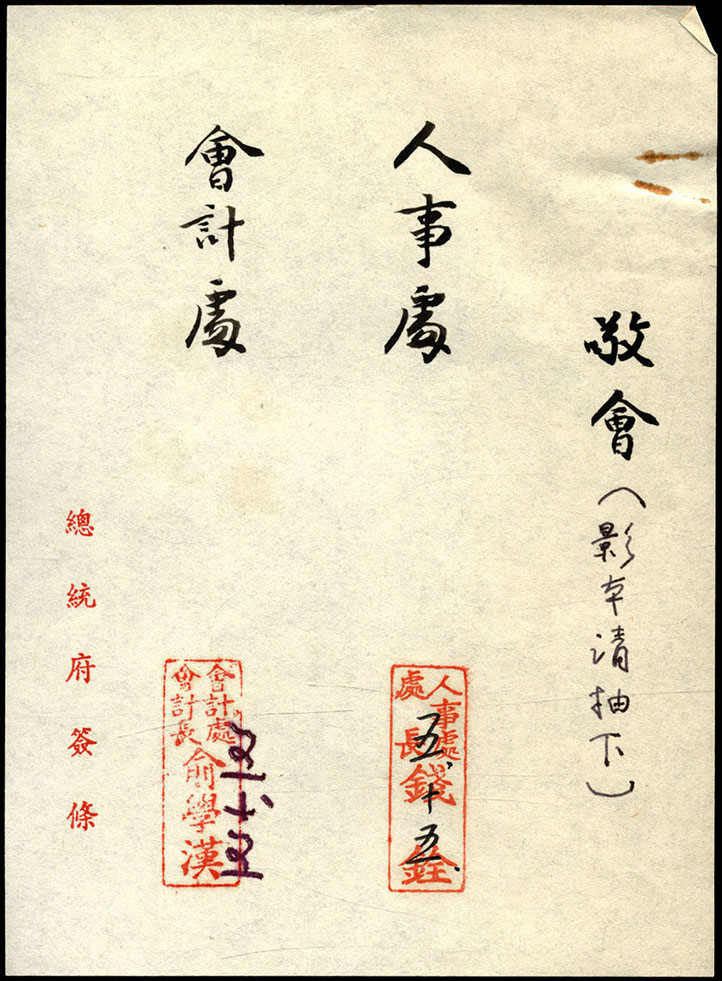 敬會(影本請抽下)
人事處
人事處
處長錢銓
五、十五、
會計處
會計處
會計長俞學漢
五、十五
總統府簽條